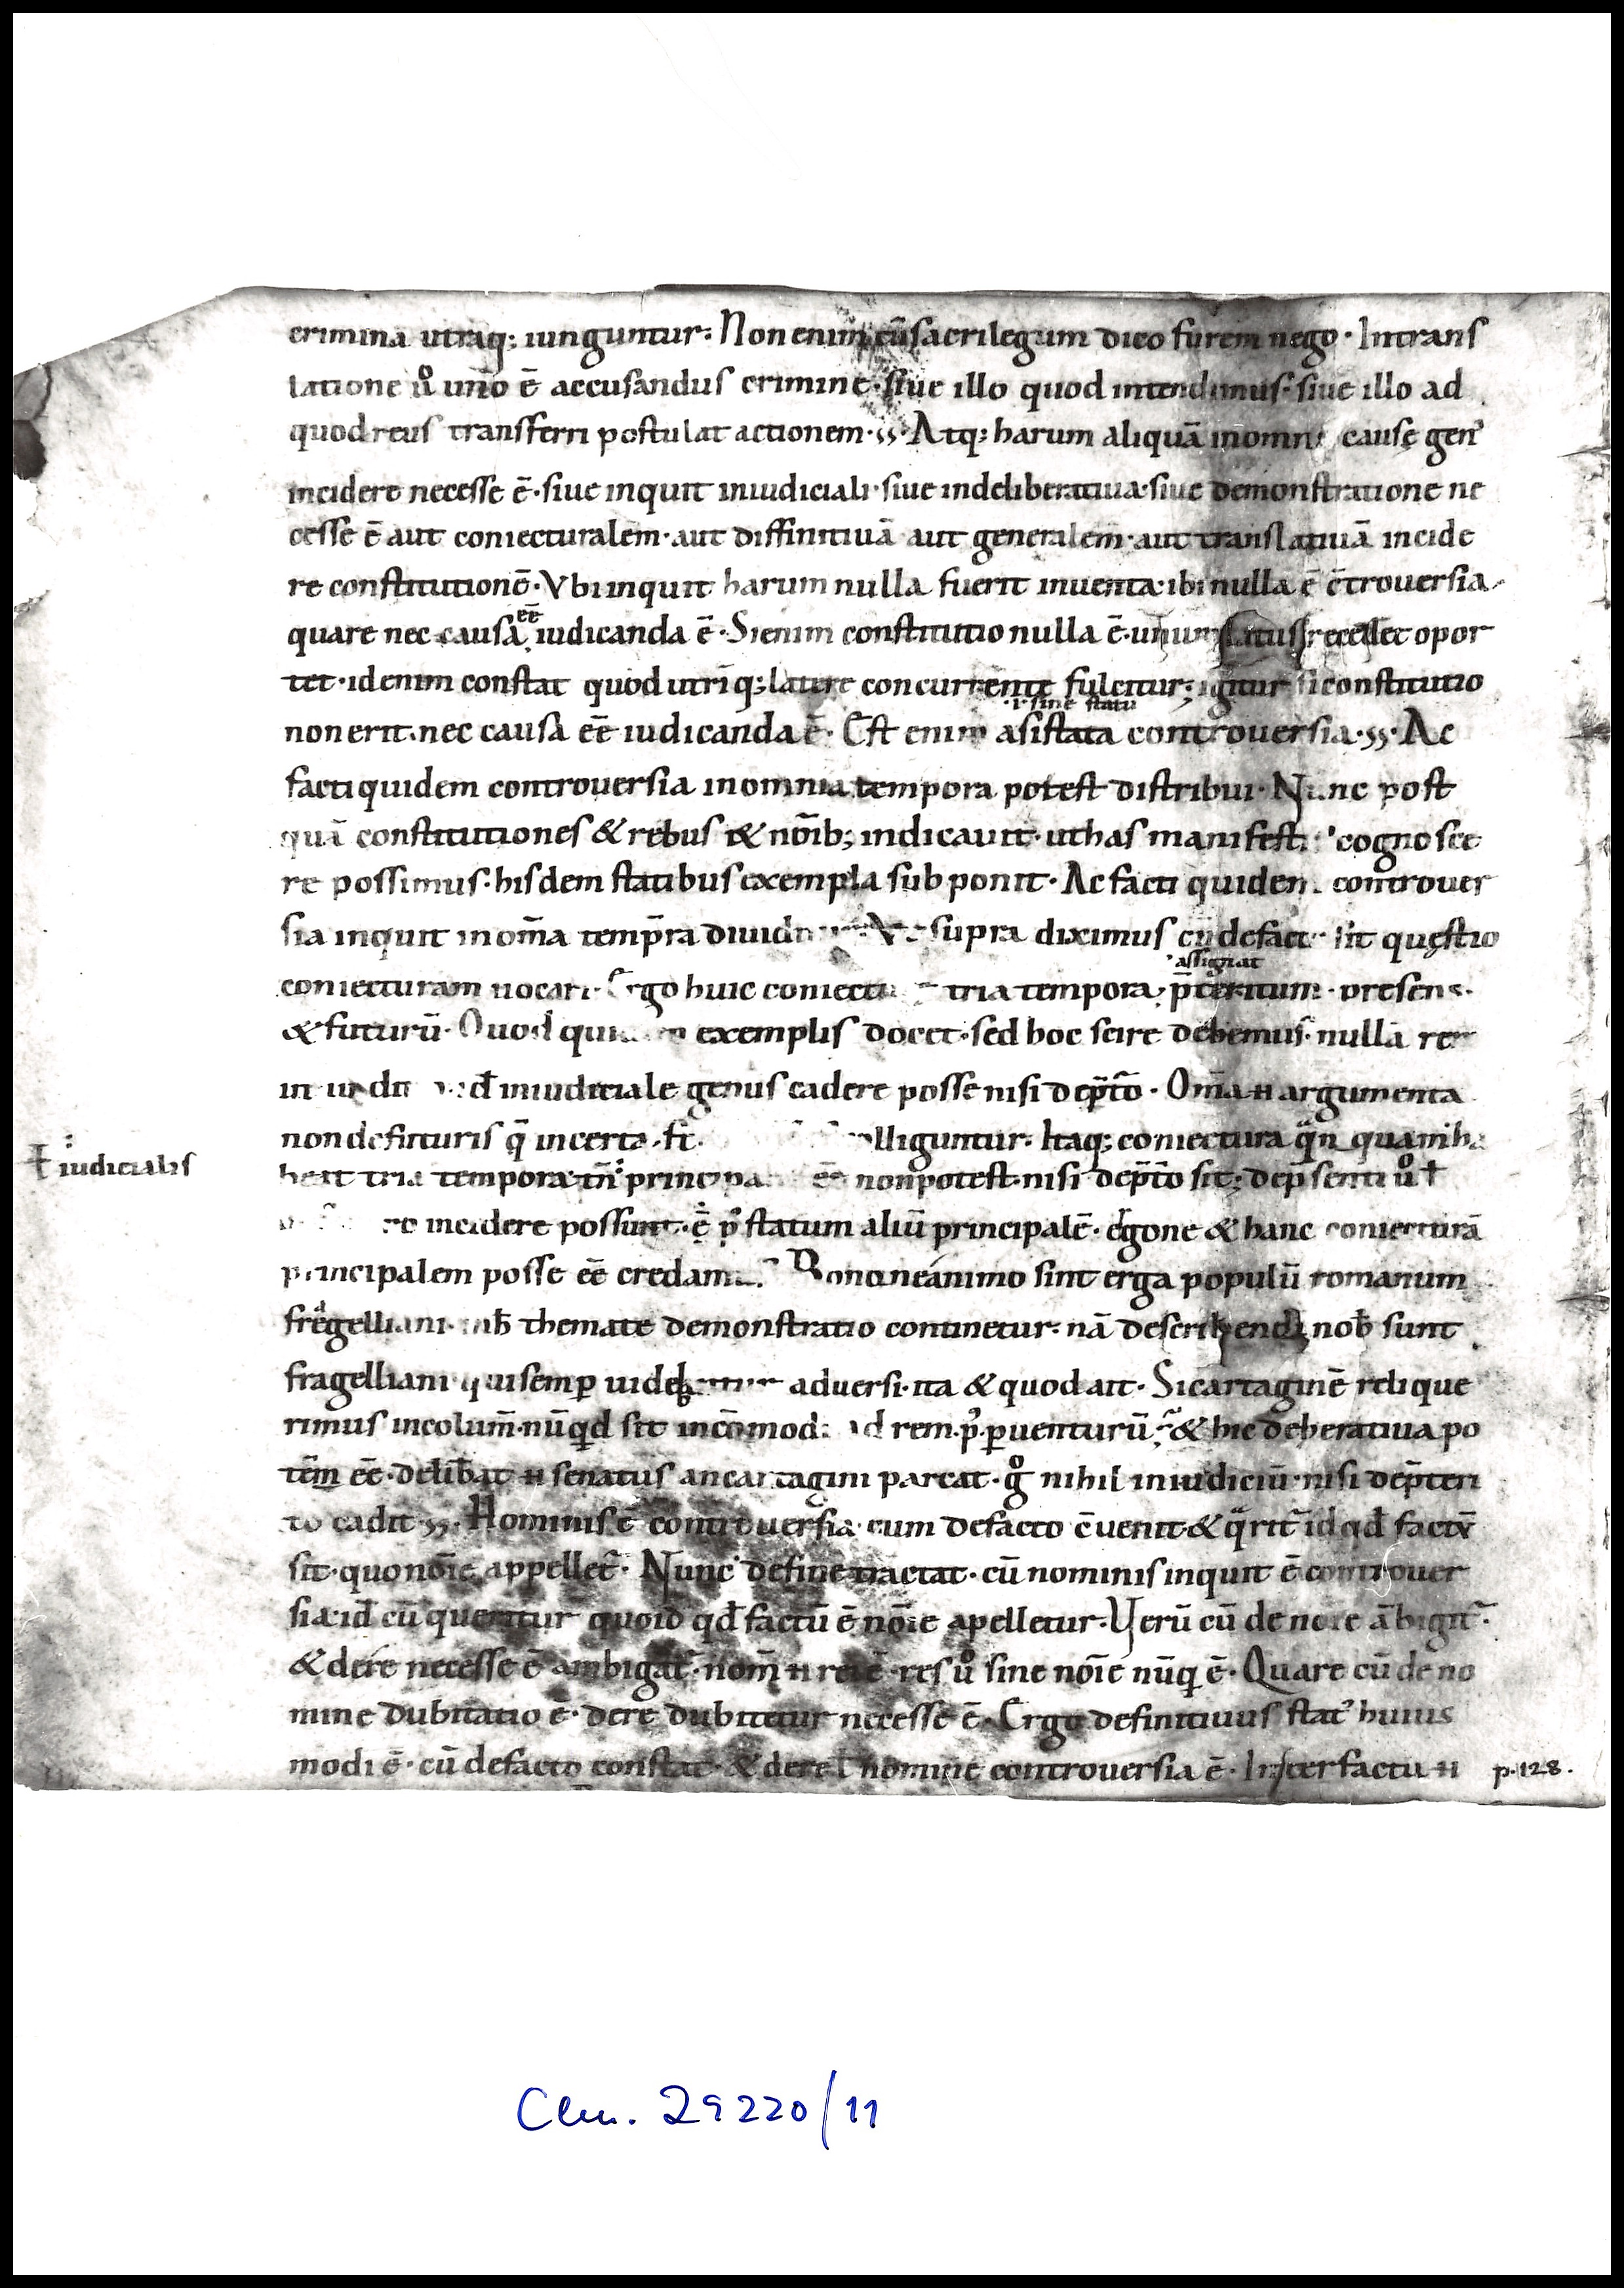 crimina utraq; iunguntur. Non enim cū sacrilegum dico furem nego. In trans
latione u̾o uno ē accusandus crimine. siue illo quod intendimus. siue illo ad
quod reus transferri postulat actionem. Atq; harum aliquā in omni cause gen̾
incidere necesse ē. siue inquit in iudiciali. siue in deliberatiua. siue demonstratione ne
cesse ē aut coniecturalem. aut diffinitiuā aut generalem. aut translatiuā incide
re constitutionē. Vbi inquit harum nulla fuerit inuenta. ibi nulla ē c̄trouersia.
quare nec causa ēē iudicanda ē. Si enim constitutio nulla ē. unum opor
tet. id enim constat quod utriq; latere concurrente fulcitur; igitur si constitutio
.i. sine statu
non erit. nec causa ēē iudicanda ē. Est enim asistata controuersia. Ac
facti quidem controuersia in omnia tempora potest distribui. Nunc post
quā constitutiones & rebus & noīb; indicauit. ut has manifesti cognosce
re possimus. hisdem statibus exempla subponit. Ac facti quidem controuer
sia inquit in om̄a temp̄ra supra diximus cū de fact sit questio
assignat
coniecturam uocari. Ergo huic tria tempora, p̄teritum. presens.
& futurū. Quod exemplis docet. sed hoc scire debemus. nullā
in iudiciale genus cadere posse nisi de p̄t̄o. Om̄a n̄ argumenta
non de futuris q̄ incerta lliguntur. Itaq; coniectura
iudicialis
tria tempora. tn̄ non potest. nisi de p̄t̄o sit; de p̄senti u̾o ł
incidere possunt. statum aliū principalē. ergone & hanc coniecturā
principalem posse ēē Bonone animo sint erga populū romanum
fregelliani. themate demonstratio continetur. nā nob̄ sunt
fragelliani qui semp̄ adversi. ita & quod ait. Si cartaginē relique
rimus incolum̄. nūqd̄ sit incōmodi ad rem.p̾. p̄uenturū. & hic deliberatiua po
tēm ēē. delib̄at n̄ senatus an cartagini parcat. g̊ nihil in iudiciū. nisi de p̄teri
to cadit. Hominis ē controuersia. cum de facto c̄uenit. & id qd̄ factū
sit. quo noīe appellet̄. Nunc de fine tractat. cū nominis inquit ē controuer
sia. id cū queritur quo id qd̄ factū ē noīe apelletur. Uerū cū de noīe ābigit̄.
& de re necesse ē ambigat̄. nom̄ n̄ rei ē. res u̾o sine noīe nūq̄ ē. Quare cū de no
mine dubitatio ē. de re dubitetur necesse ē. Ergo definitiuus stat̾ huius
modi ē. cū de facto constat. & de re ł nomine controuersia ē. Inter factū n̄
p. 128.
Clm. 29220/11